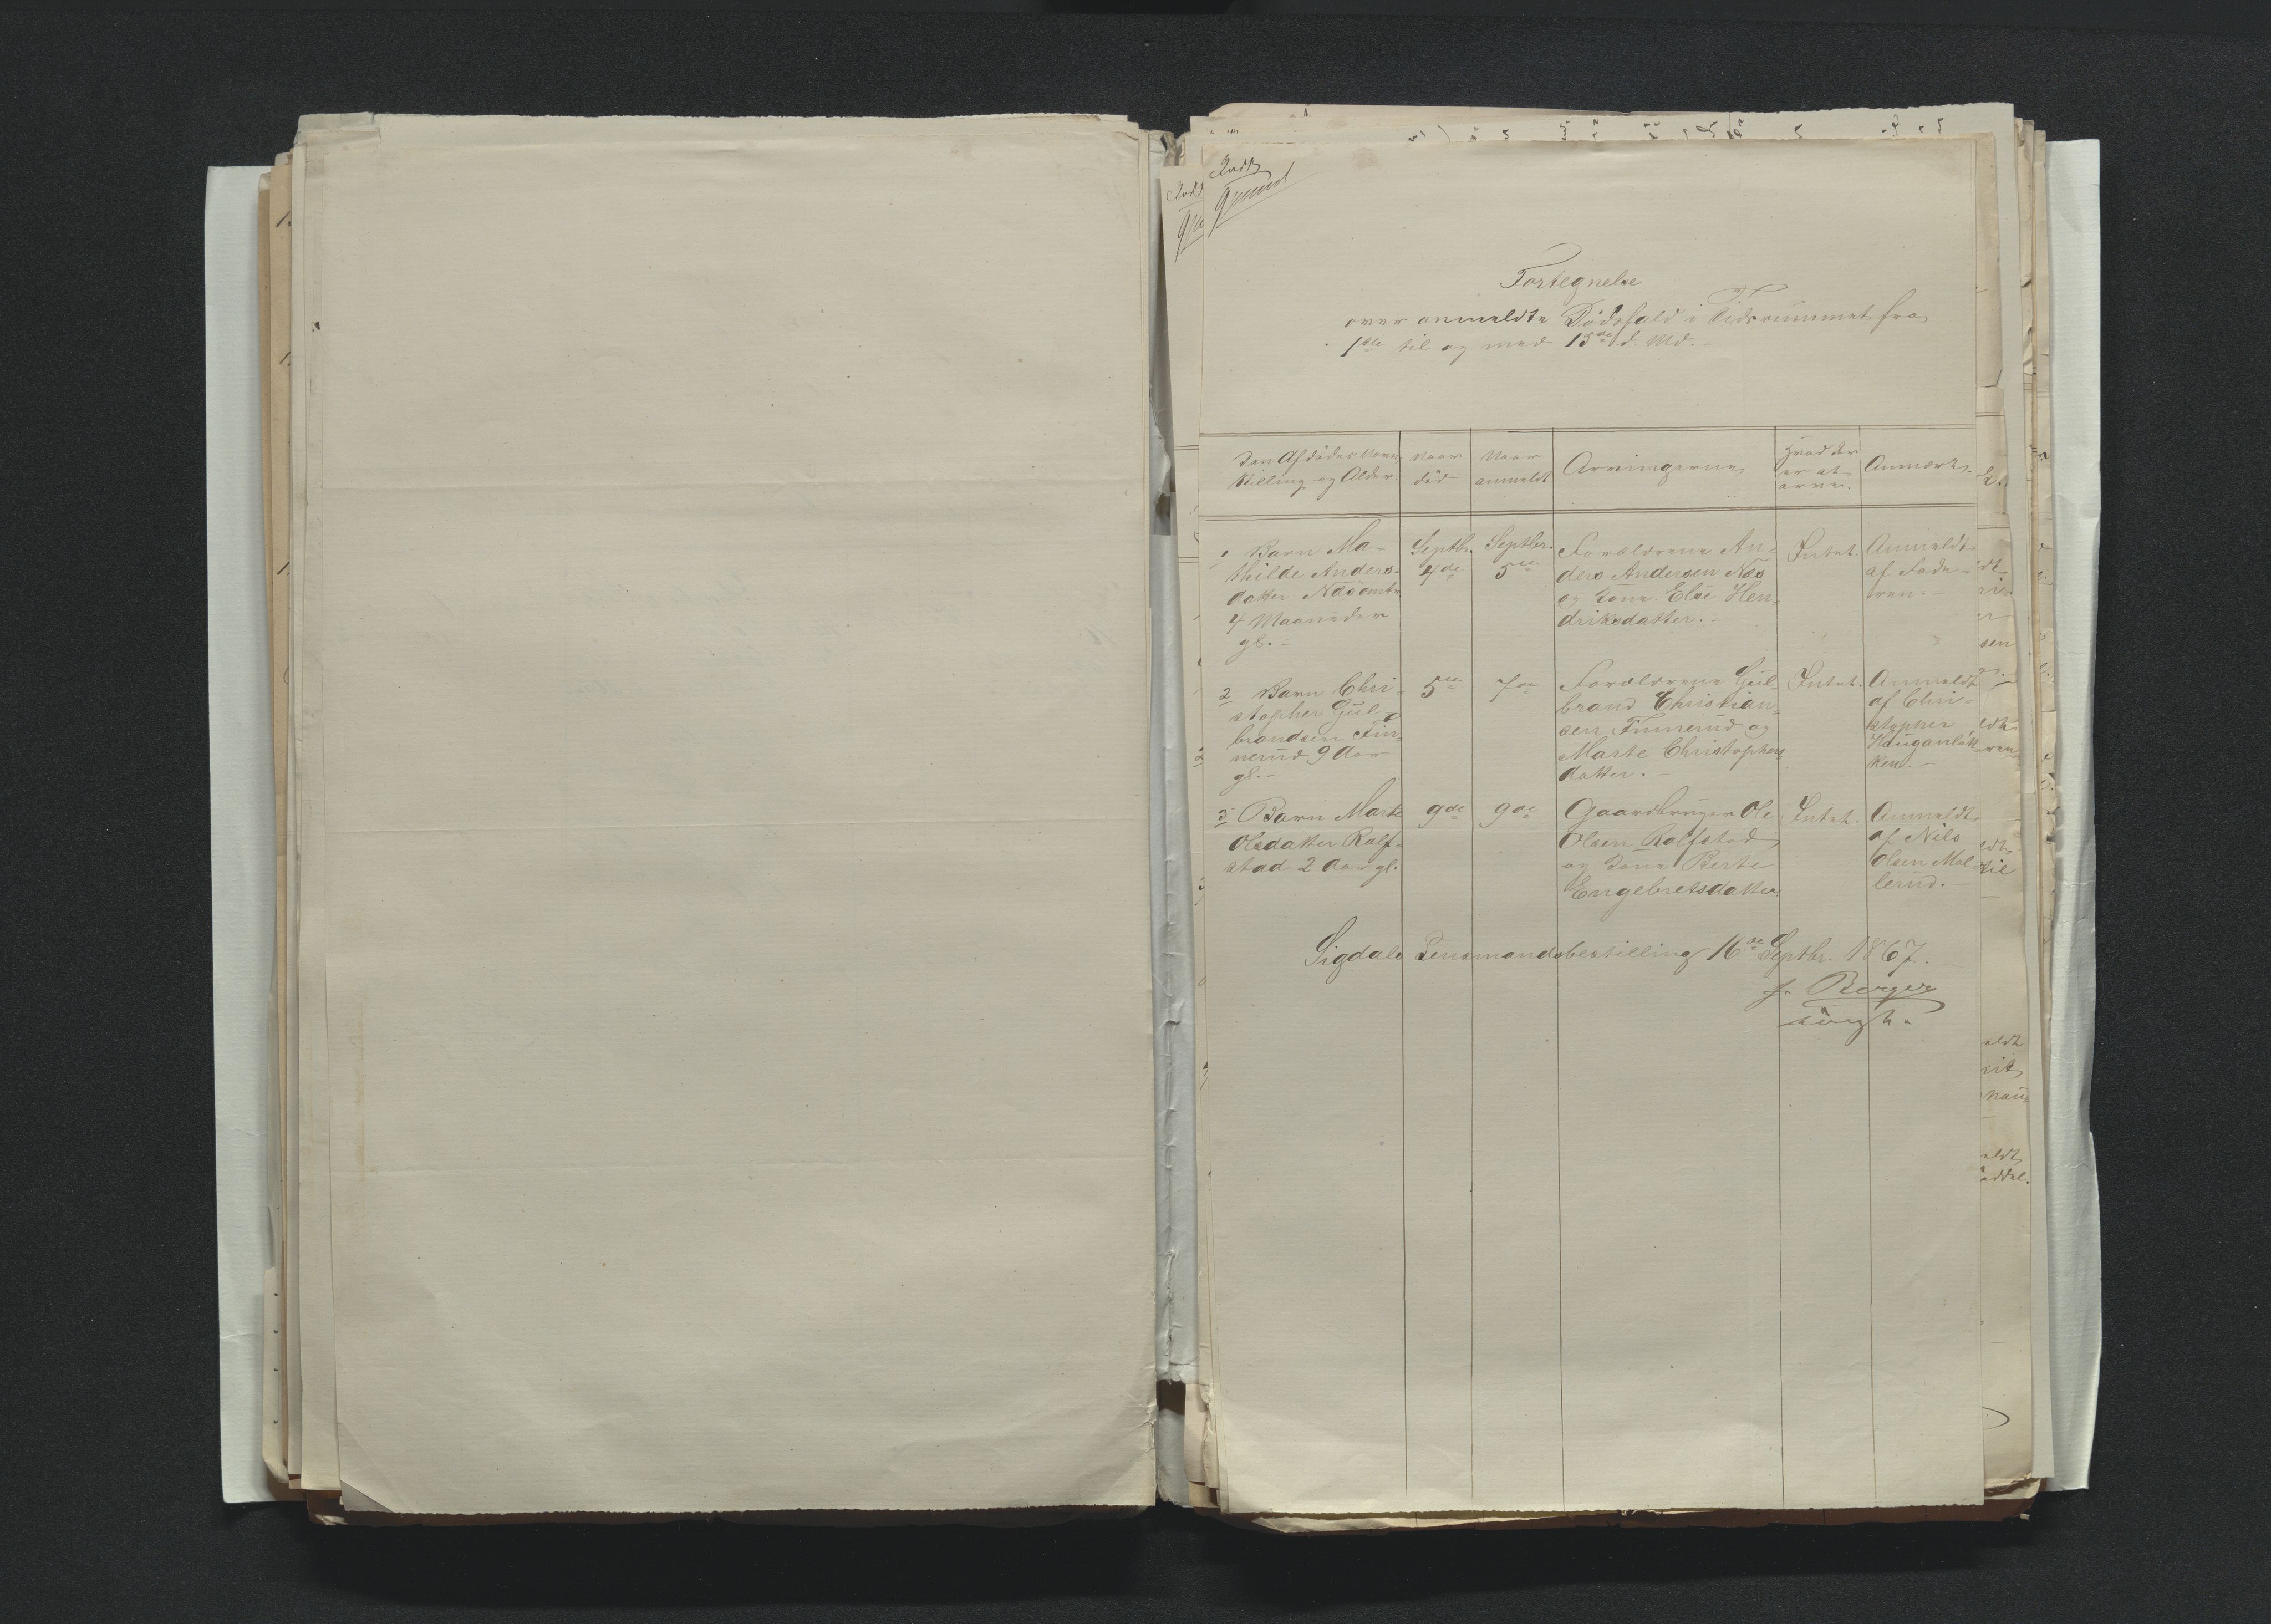 Fortegnelse
over anmeldte Dödsfald i Tidsrummet fra
1ste til og med 15de d. Md.
Den Afdödes Navn, Stilling og Alder. Naar död Naar anmeldt Arvingerne Hvad der er at arve. Anmærk.
1 Barn Ma-
thilde Anders-
datter
4 Maaneder
gl. -
Septbr.
4de
Septbr.
5te
Forældrene An-
ders Andersen Næs
og Kone Else Hen-
driksdatter. -
Intet.
Anmeldt
af Fade-
ren. -
2 Barn Chri-
stopher Gul-
brandsen Fin-
nerud 9 Aar
gl. -
5te
7de
Forældrene Gul-
brand Christian-
sen Finnerud og
Marte Christophers-
datter. -
Intet.
Anmeldt
af Chri-
stopher
3 Barn Marte
Olsdatter Rolf-
stad 2 Aar gl.
9de
9de
Gaardbruger Ole
Olsen Rolfstad
og Kone Berte
Engebretsdatter
Intet.
Anmeldt
af Nils
Olsen Mol-
lerud. -
Sigdals Lensmandsbestilling 16de Septbr. 1867.
Berger